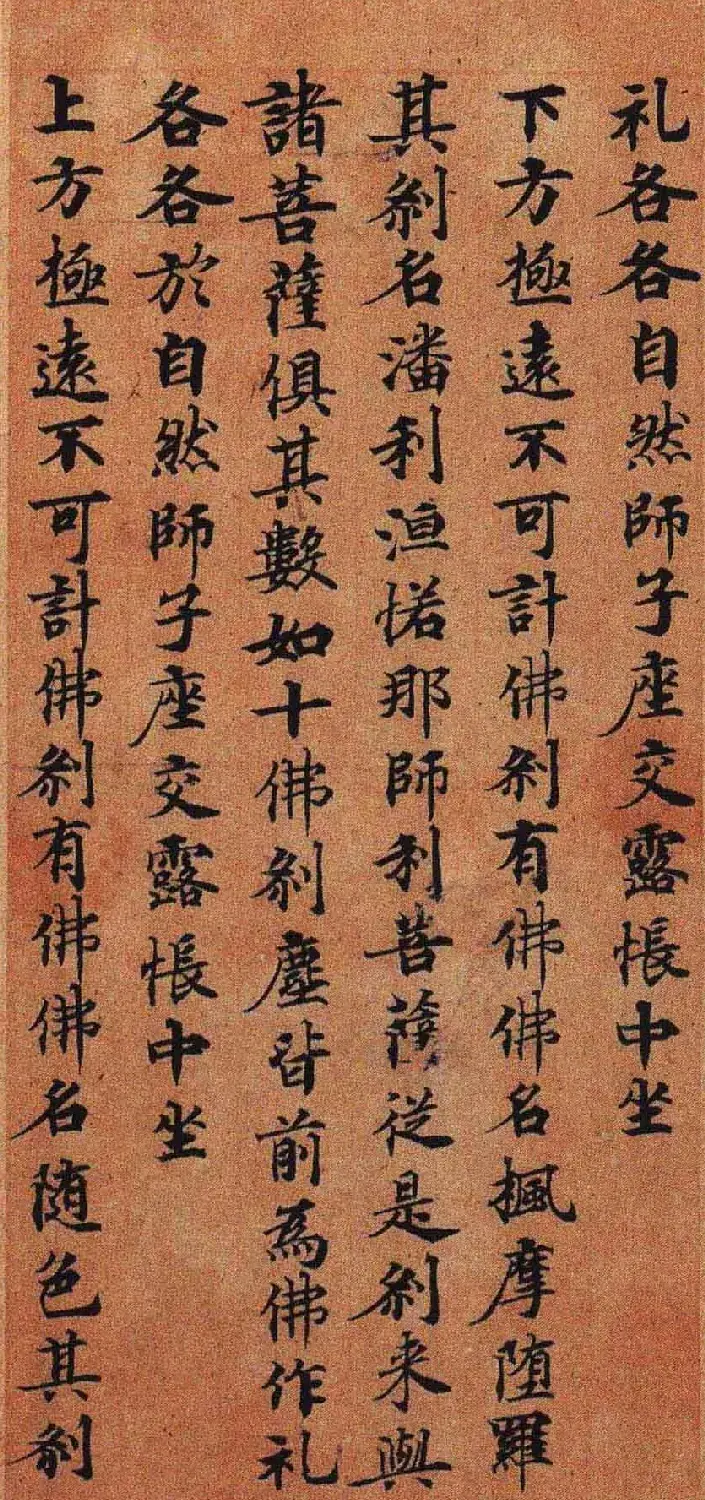 礼各各自然師子座交露帳中坐
下方極遠不可計佛剎有佛佛名楓摩堕羅
其剎名潘利洹惒那師利菩薩從是剎来與
諸菩薩俱其數如十佛剎塵皆前為佛作礼
各各於自然師子座交露帳中坐
上方極遠不可計佛剎有佛佛名随色其剎